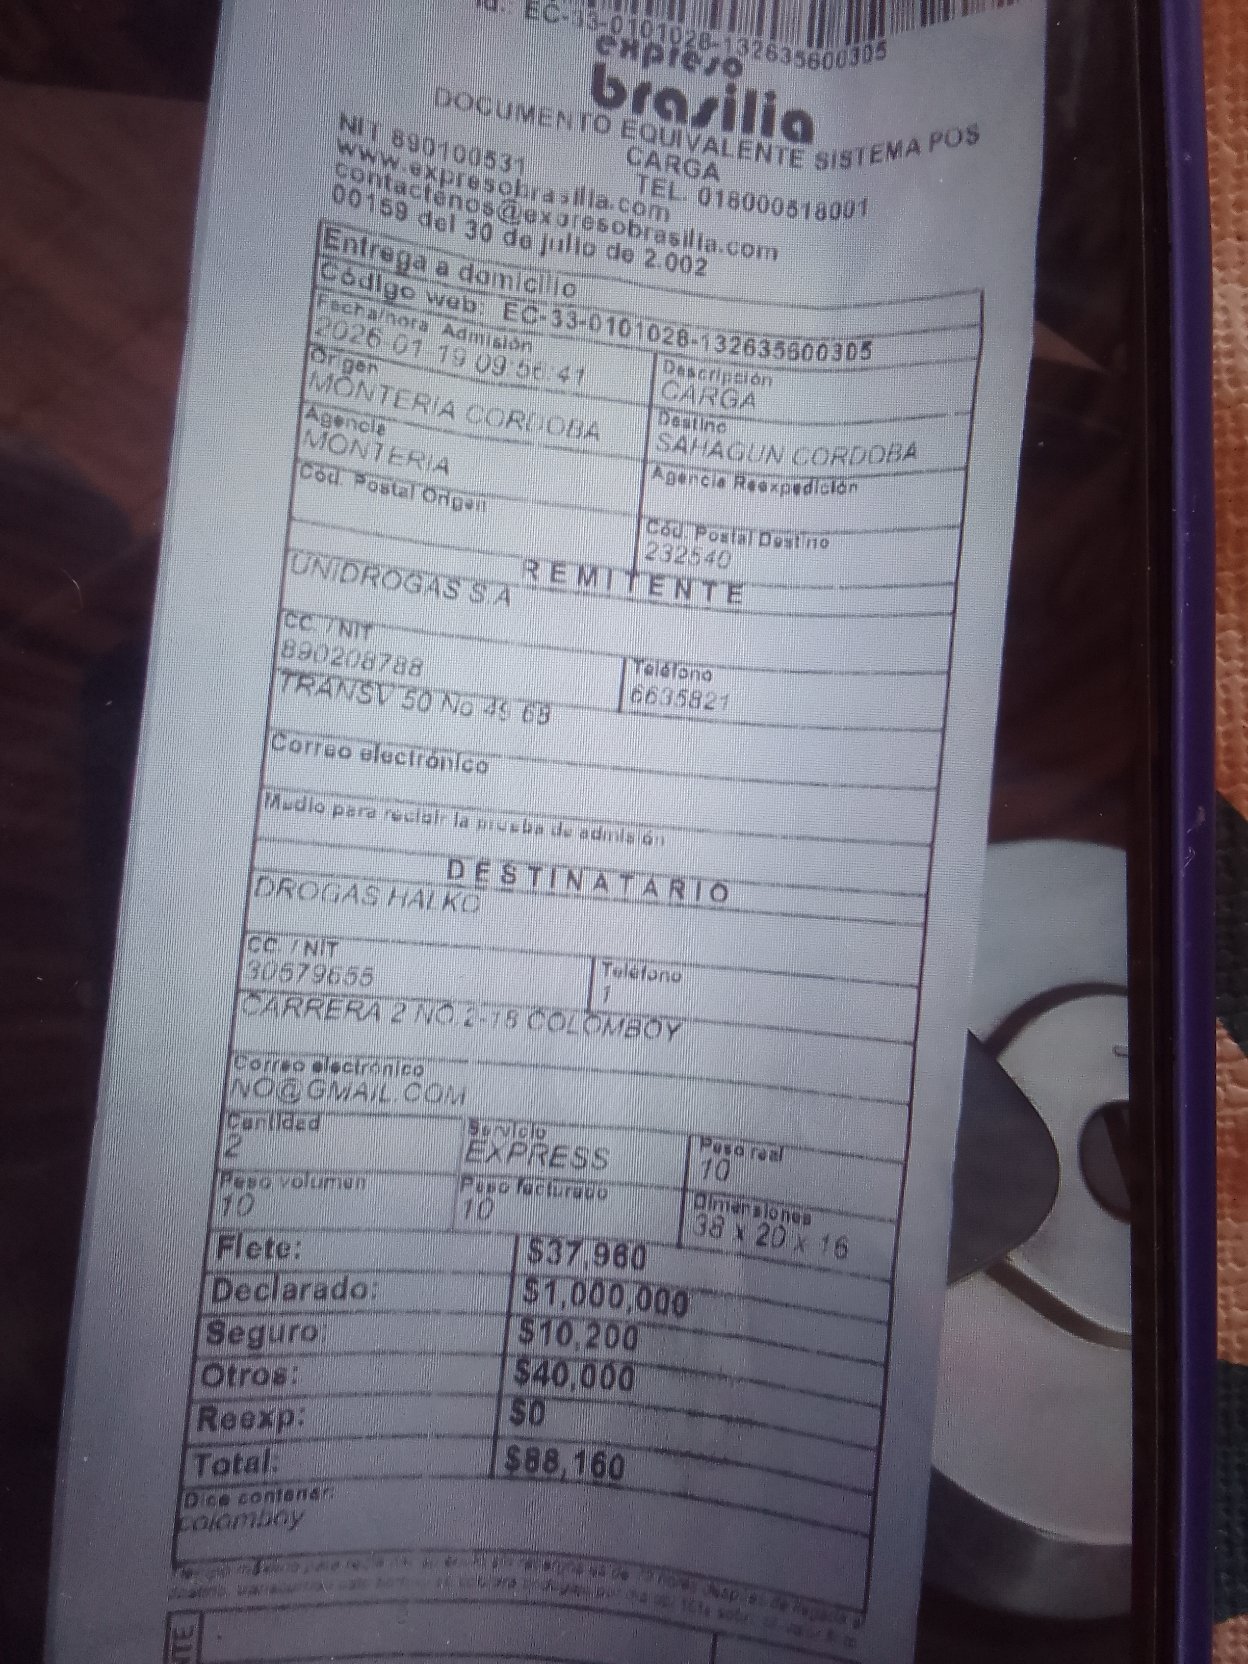 Id.: EC-33-0101028-132635600305
expreso
brasilia
DOCUMENTO EQUIVALENTE SISTEMA POS
CARGA
NIT 890100531 TEL. 018000518001
www.expresobrasilia.com
contactenos@expresobrasilia.com
00159 del 30 de julio de 2.002
Entrega a domicilio
Código web: EC-33-0101028-132635600305
Fecha/hora Admisión
2026-01-19 09:56:41
Descripción
CARGA
Origen
MONTERIA CORDOBA
Destino
SAHAGUN CORDOBA
Agencia
MONTERIA
Agencia Reexpedición
Cód. Postal Origen
Cód. Postal Destino
232540
REMITENTE
UNIDROGAS S.A
CC. / NIT
890208788
Teléfono
6635821
TRANSV 50 No 49 69
Correo electrónico
Medio para recibir la prueba de admisión
DESTINATARIO
DROGAS HALKO
CC. / NIT
30579655
Teléfono
1
CARRERA 2 NO 2-18 COLOMBOY
Correo electrónico
NO@GMAIL.COM
Cantidad
2
Servicio
EXPRESS
Peso real
10
Peso volumen
10
Peso facturado
10
Dimensiones
38 x 20 x 16
Flete: $37,960
Declarado: $1,000,000
Seguro: $10,200
Otros: $40,000
Reexp: $0
Total: $88,160
Dice contener:
colomboy